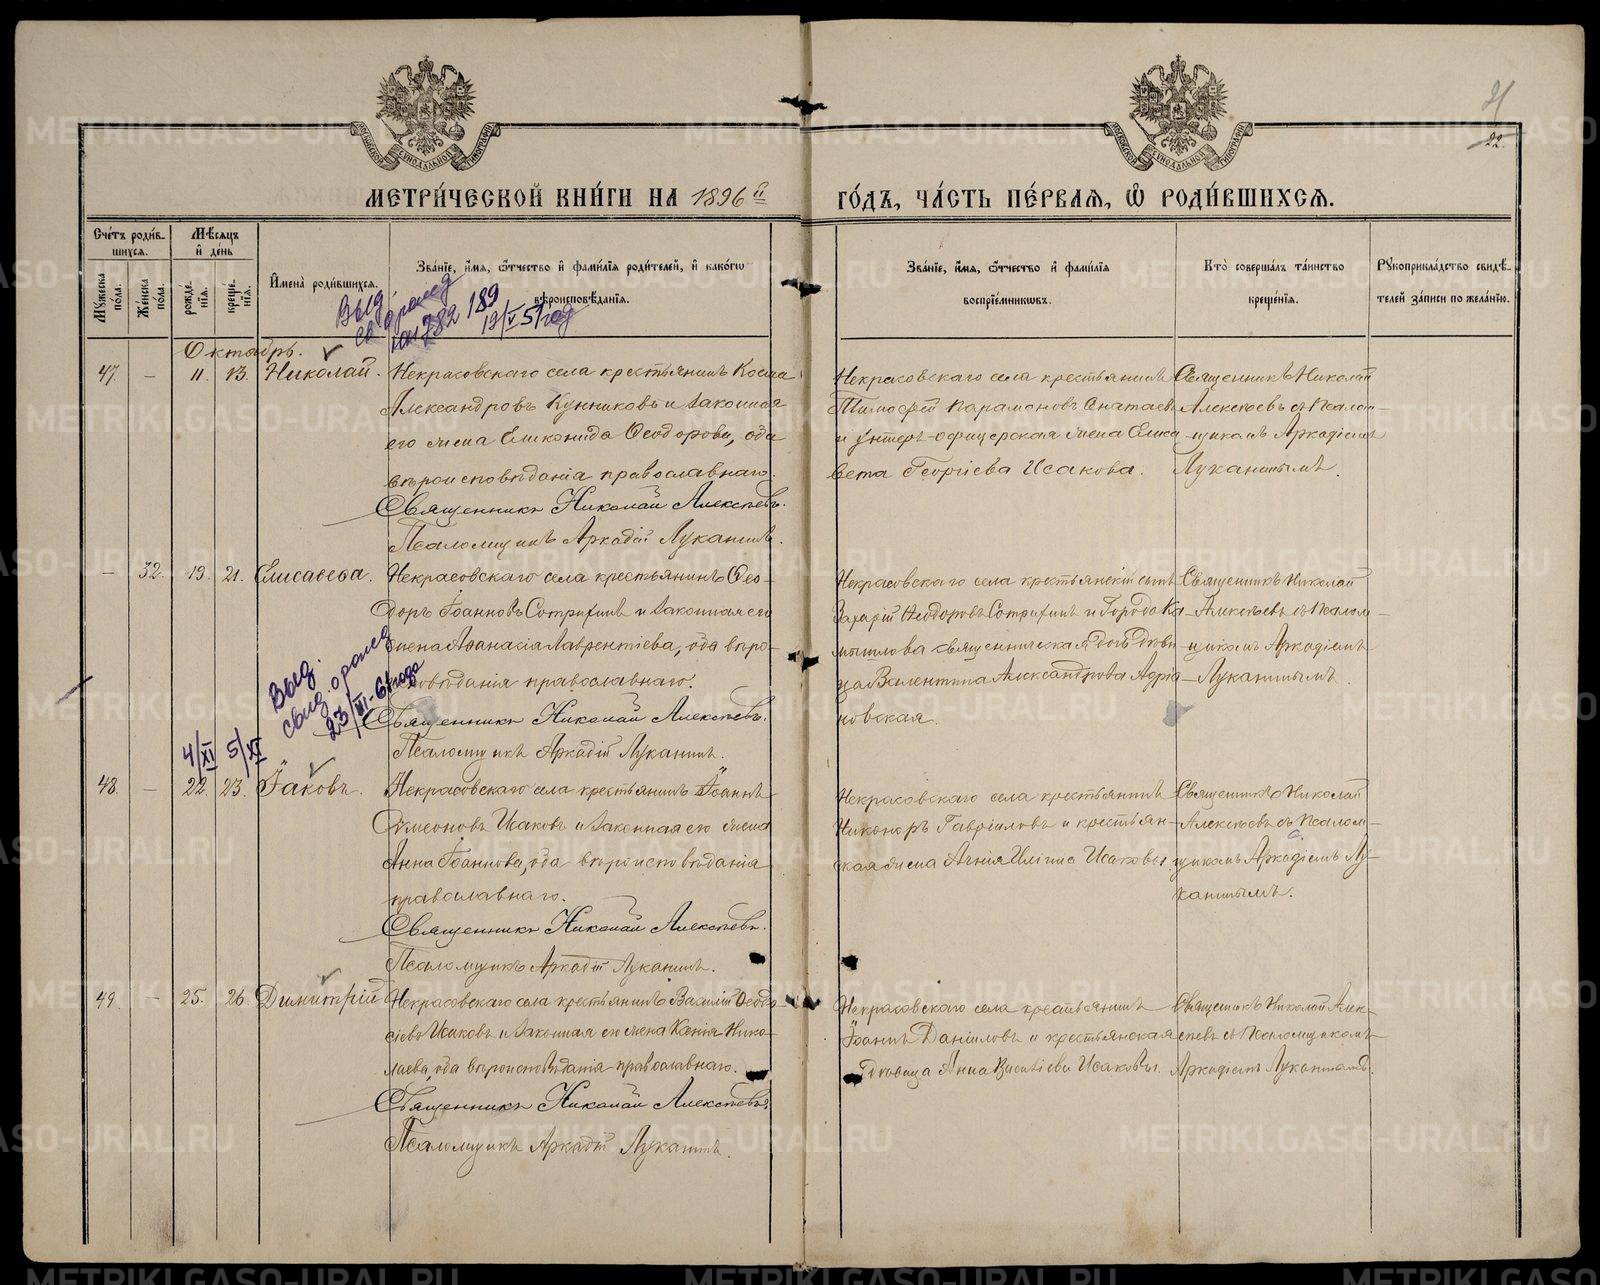 МЕТРИ́ЧЕСКОЙ КНИ́ГИ НА 1896й
ГО́ДЪ, ЧА́СТЬ ПЕ́РВАЯ, Ѡ РОДИ́ВШИХСЯ.
21
22.
Сче́тъ роди́в-
шихся.
Мѣ́сяцъ
и де́нь
Мꙋ́жеска по́ла.
Же́нска по́ла.
рожде́нїя.
креще́нїя.
Имена̀ роди́вшихся.
Зва́нїе, и́мя, ѻ́тчество и фами́лїя роди́телей, и како́гѡ
вѣроисповѣ́данїя.
Зва́нїе, и́мя, ѻ́тчество и фами́лїя
воспрїе́мникѡвъ.
Кто̀ соверша́лъ та́инство
креще́нїя.
Рꙋкоприкла́дство свидѣ́-
телей за́писи по жела́нїю.
Выд.
св. о рожд
19/V 51 год
Октябрь.
47. — 11. 13. Николай.
Некрасовскаго села крестьянинъ Косма
Александровъ Кунниковъ и законная
его жена Ѳеодорова, оба
вѣроисповѣданія православнаго.
Священникъ Николай Алексѣевъ.
Псаломщикъ Аркадій Луканинъ.
Некрасовскаго села крестьянинъ
Тимофей Парамоновъ
и унтеръ-офицерская жена Елиса-
вета Георгіева Исакова.
Священникъ Николай
Алексѣевъ съ псалом-
щикомъ Аркадіемъ
Луканинымъ.
— 32. 19. 21. Елисавета.
Некрасовскаго села крестьянинъ Ѳео-
доръ Іоанновъ и законная его
жена Аѳанасія Лаврентіева, оба вѣро-
исповѣданія православнаго.
Священникъ Николай Алексѣевъ.
Псаломщикъ Аркадій Луканинъ.
Некрасовскаго села крестьянскій сынъ
Захарій Ѳеодоровъ и города Ка-
мышлова священническая дочь дѣви-
ца Валентина Александрова Адріа-
новская.
Священникъ Николай
Алексѣевъ съ псалом-
щикомъ Аркадіемъ
Луканинымъ.
Выд.
свид. о рожд
23/VI-61 года
4/XI 5/XI
48. — 22. 23. Іаковъ.
Некрасовскаго села крестьянинъ Іоаннъ
Симеоновъ Исаковъ и законная его жена
Анна Іоаннова, оба вѣроисповѣданія
православнаго.
Священникъ Николай Алексѣевъ.
Псаломщикъ Аркадій Луканинъ.
Некрасовскаго села крестьянинъ
Никоноръ Гавріиловъ и крестьян-
ская жена Агнія Исаковы.
Священникъ Николай
Алексѣевъ съ псалом-
щикомъ Аркадіемъ Лу-
канинымъ.
49. — 25. 26. Димитрій
Некрасовскаго села крестьянинъ Василій Ѳеодо-
сіевъ Исаковъ и законная его жена Ксенія Нико-
лаева, оба вѣроисповѣданія православнаго.
Священникъ Николай Алексѣевъ.
Псаломщикъ Аркадій Луканинъ.
Некрасовскаго села крестьянинъ
Іоаннъ Даніиловъ и крестьянская
дѣвица Анна Васильева Исаковы.
Священникъ Николай Алек-
сѣевъ съ псаломщикомъ
Аркадіемъ Луканинымъ.
METRIKI.GASO-URAL.RU